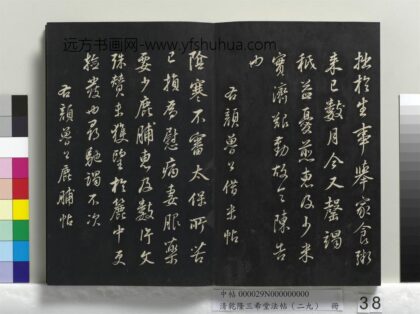 远方书画网-www.yfshuhua.com
拙於生事舉家食粥
来已數月今又罄竭
秖益憂煎惠及少米
實濟艱勤故令陳告
也
右顏魯公借米帖
陰寒不審太保所苦
已損為慰病妻服藥
要少鹿脯惠及數片又
求獲望於麓中更
檢也馳謁不次
右顏魯公鹿脯帖
中帖 000029N000000000
清乾隆三希堂法帖(二九) 冊
38